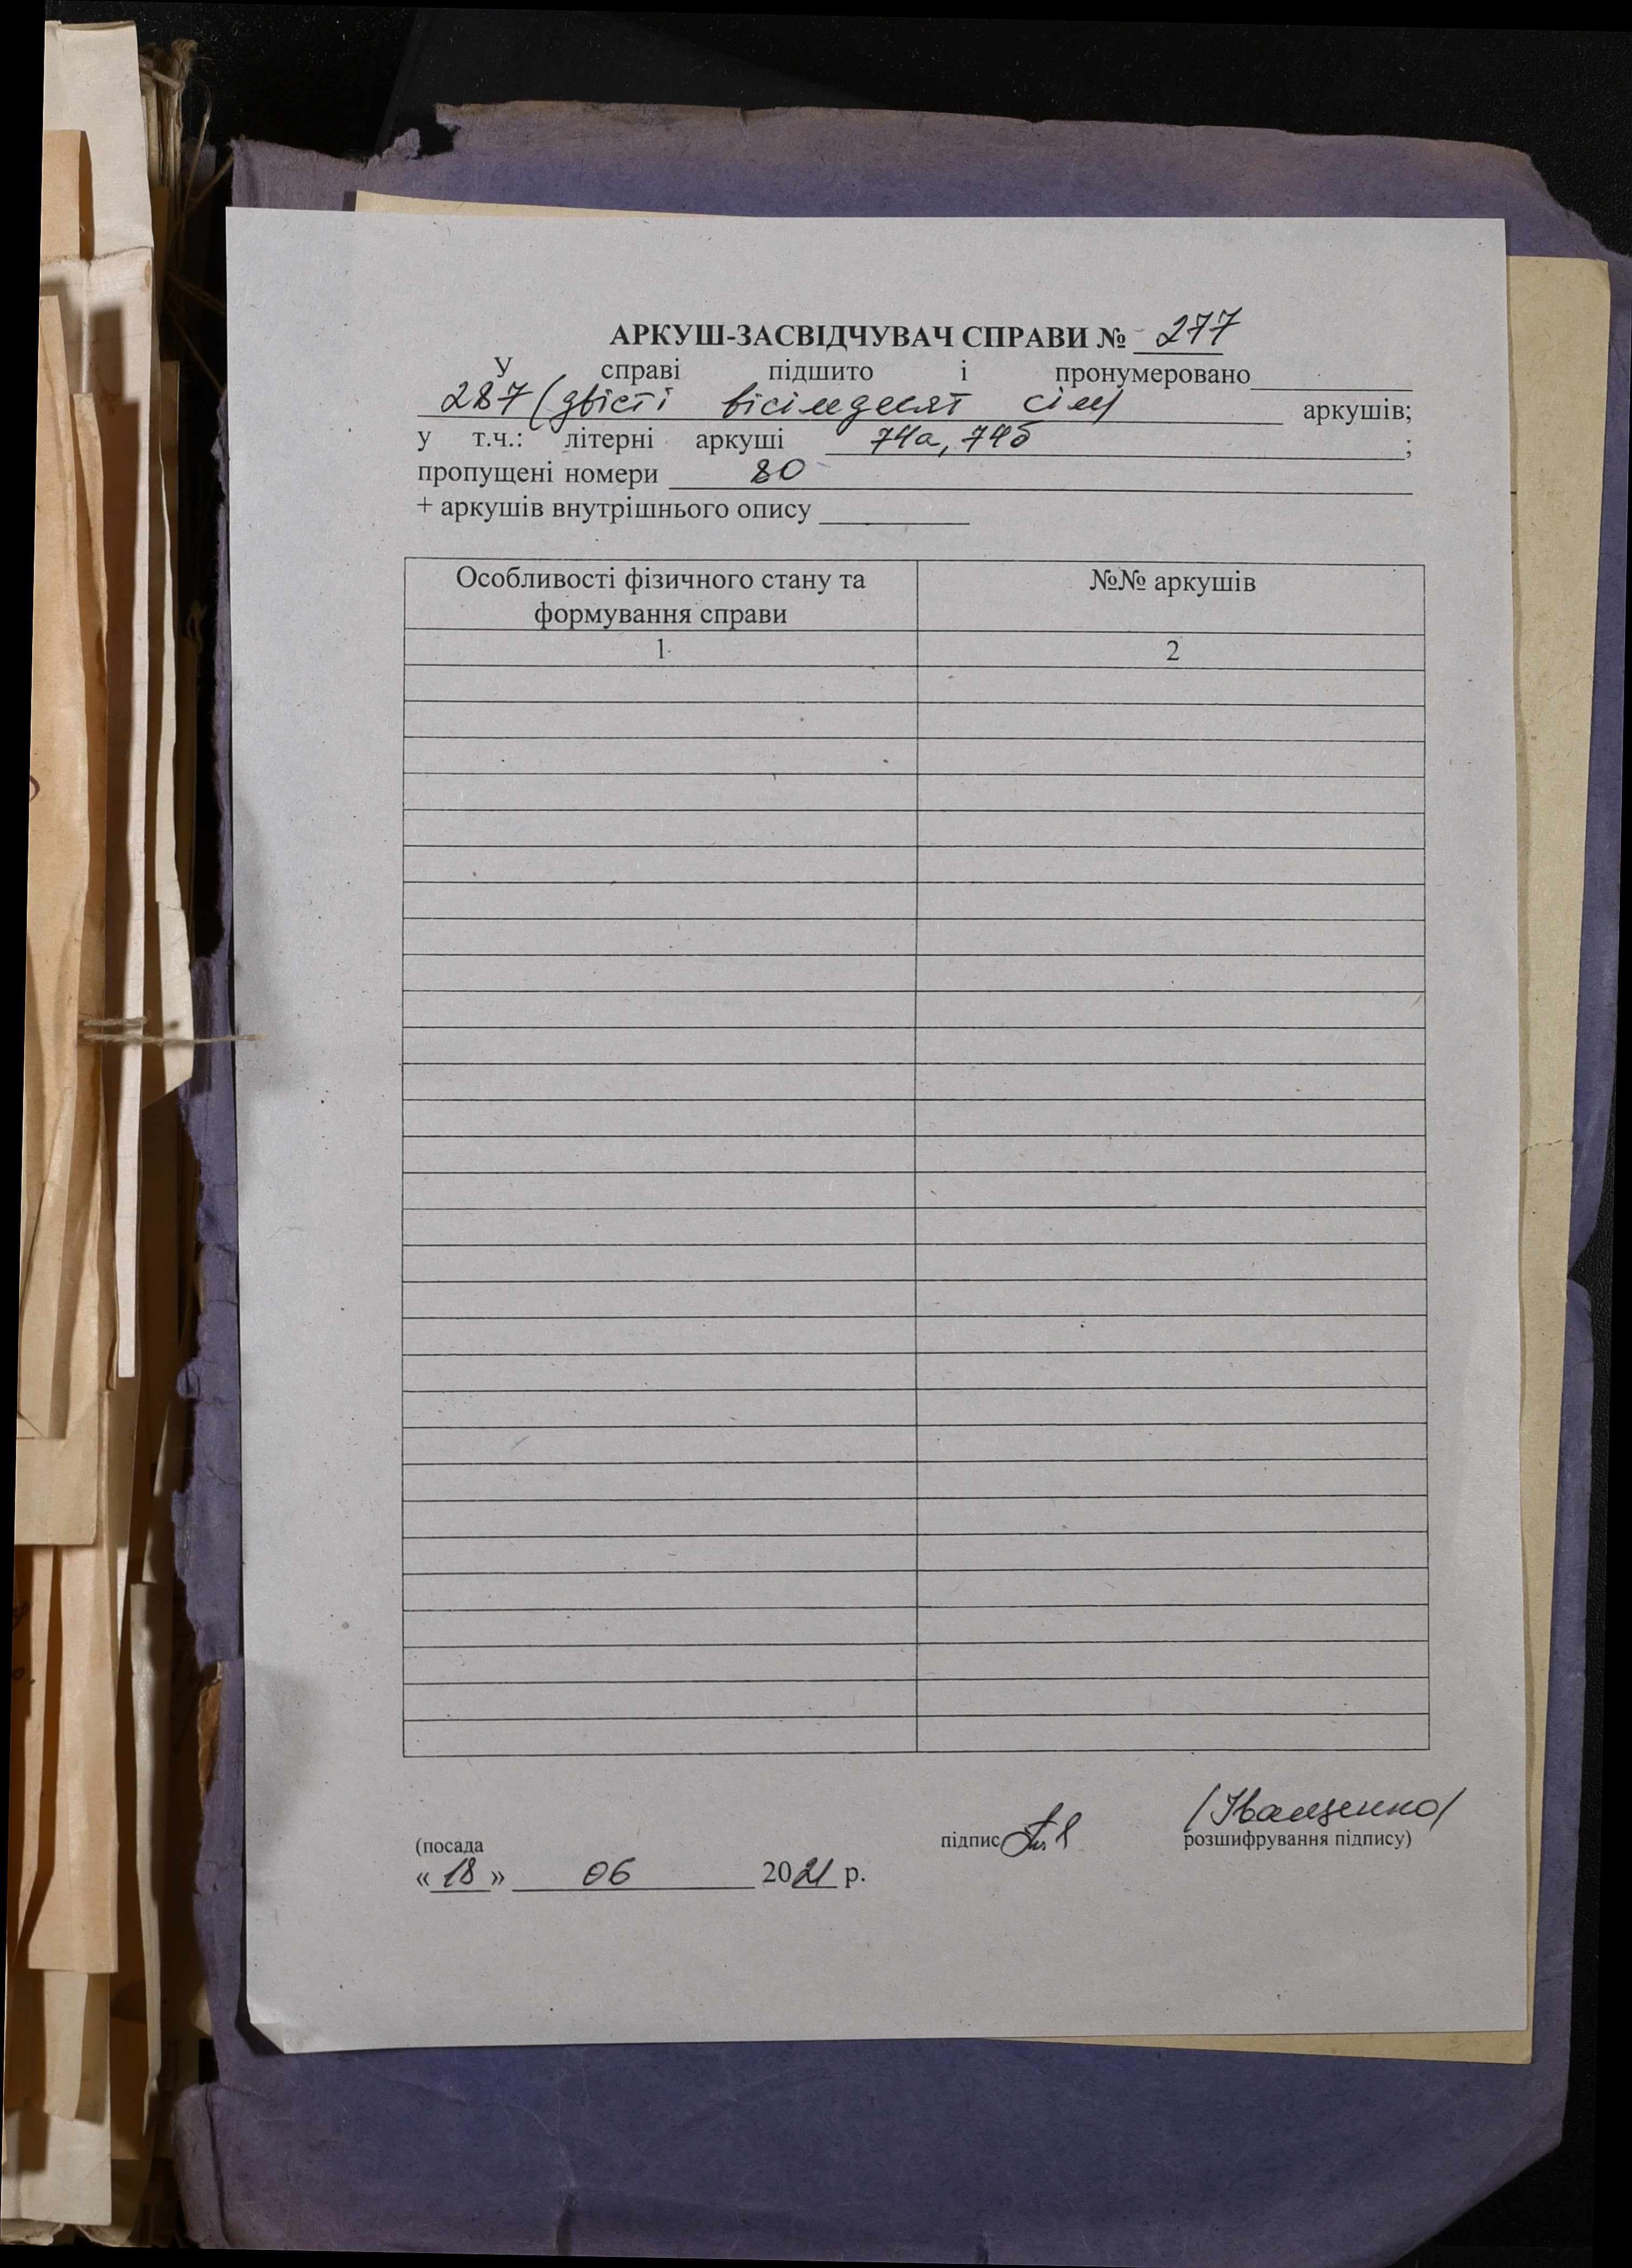 АРКУШ-ЗАСВІДЧУВАЧ СПРАВИ № 277
У справі підшито і пронумеровано
287 (двісті вісімдесят сім) аркушів;
у т.ч.: літерні аркуші 74а, 74б ;
пропущені номери 80
+ аркушів внутрішнього опису
Особливості фізичного стану та формування справи №№ аркушів
1 2
/Іващенко/
(посада підпис розшифрування підпису)
«18» 06 2021 р.